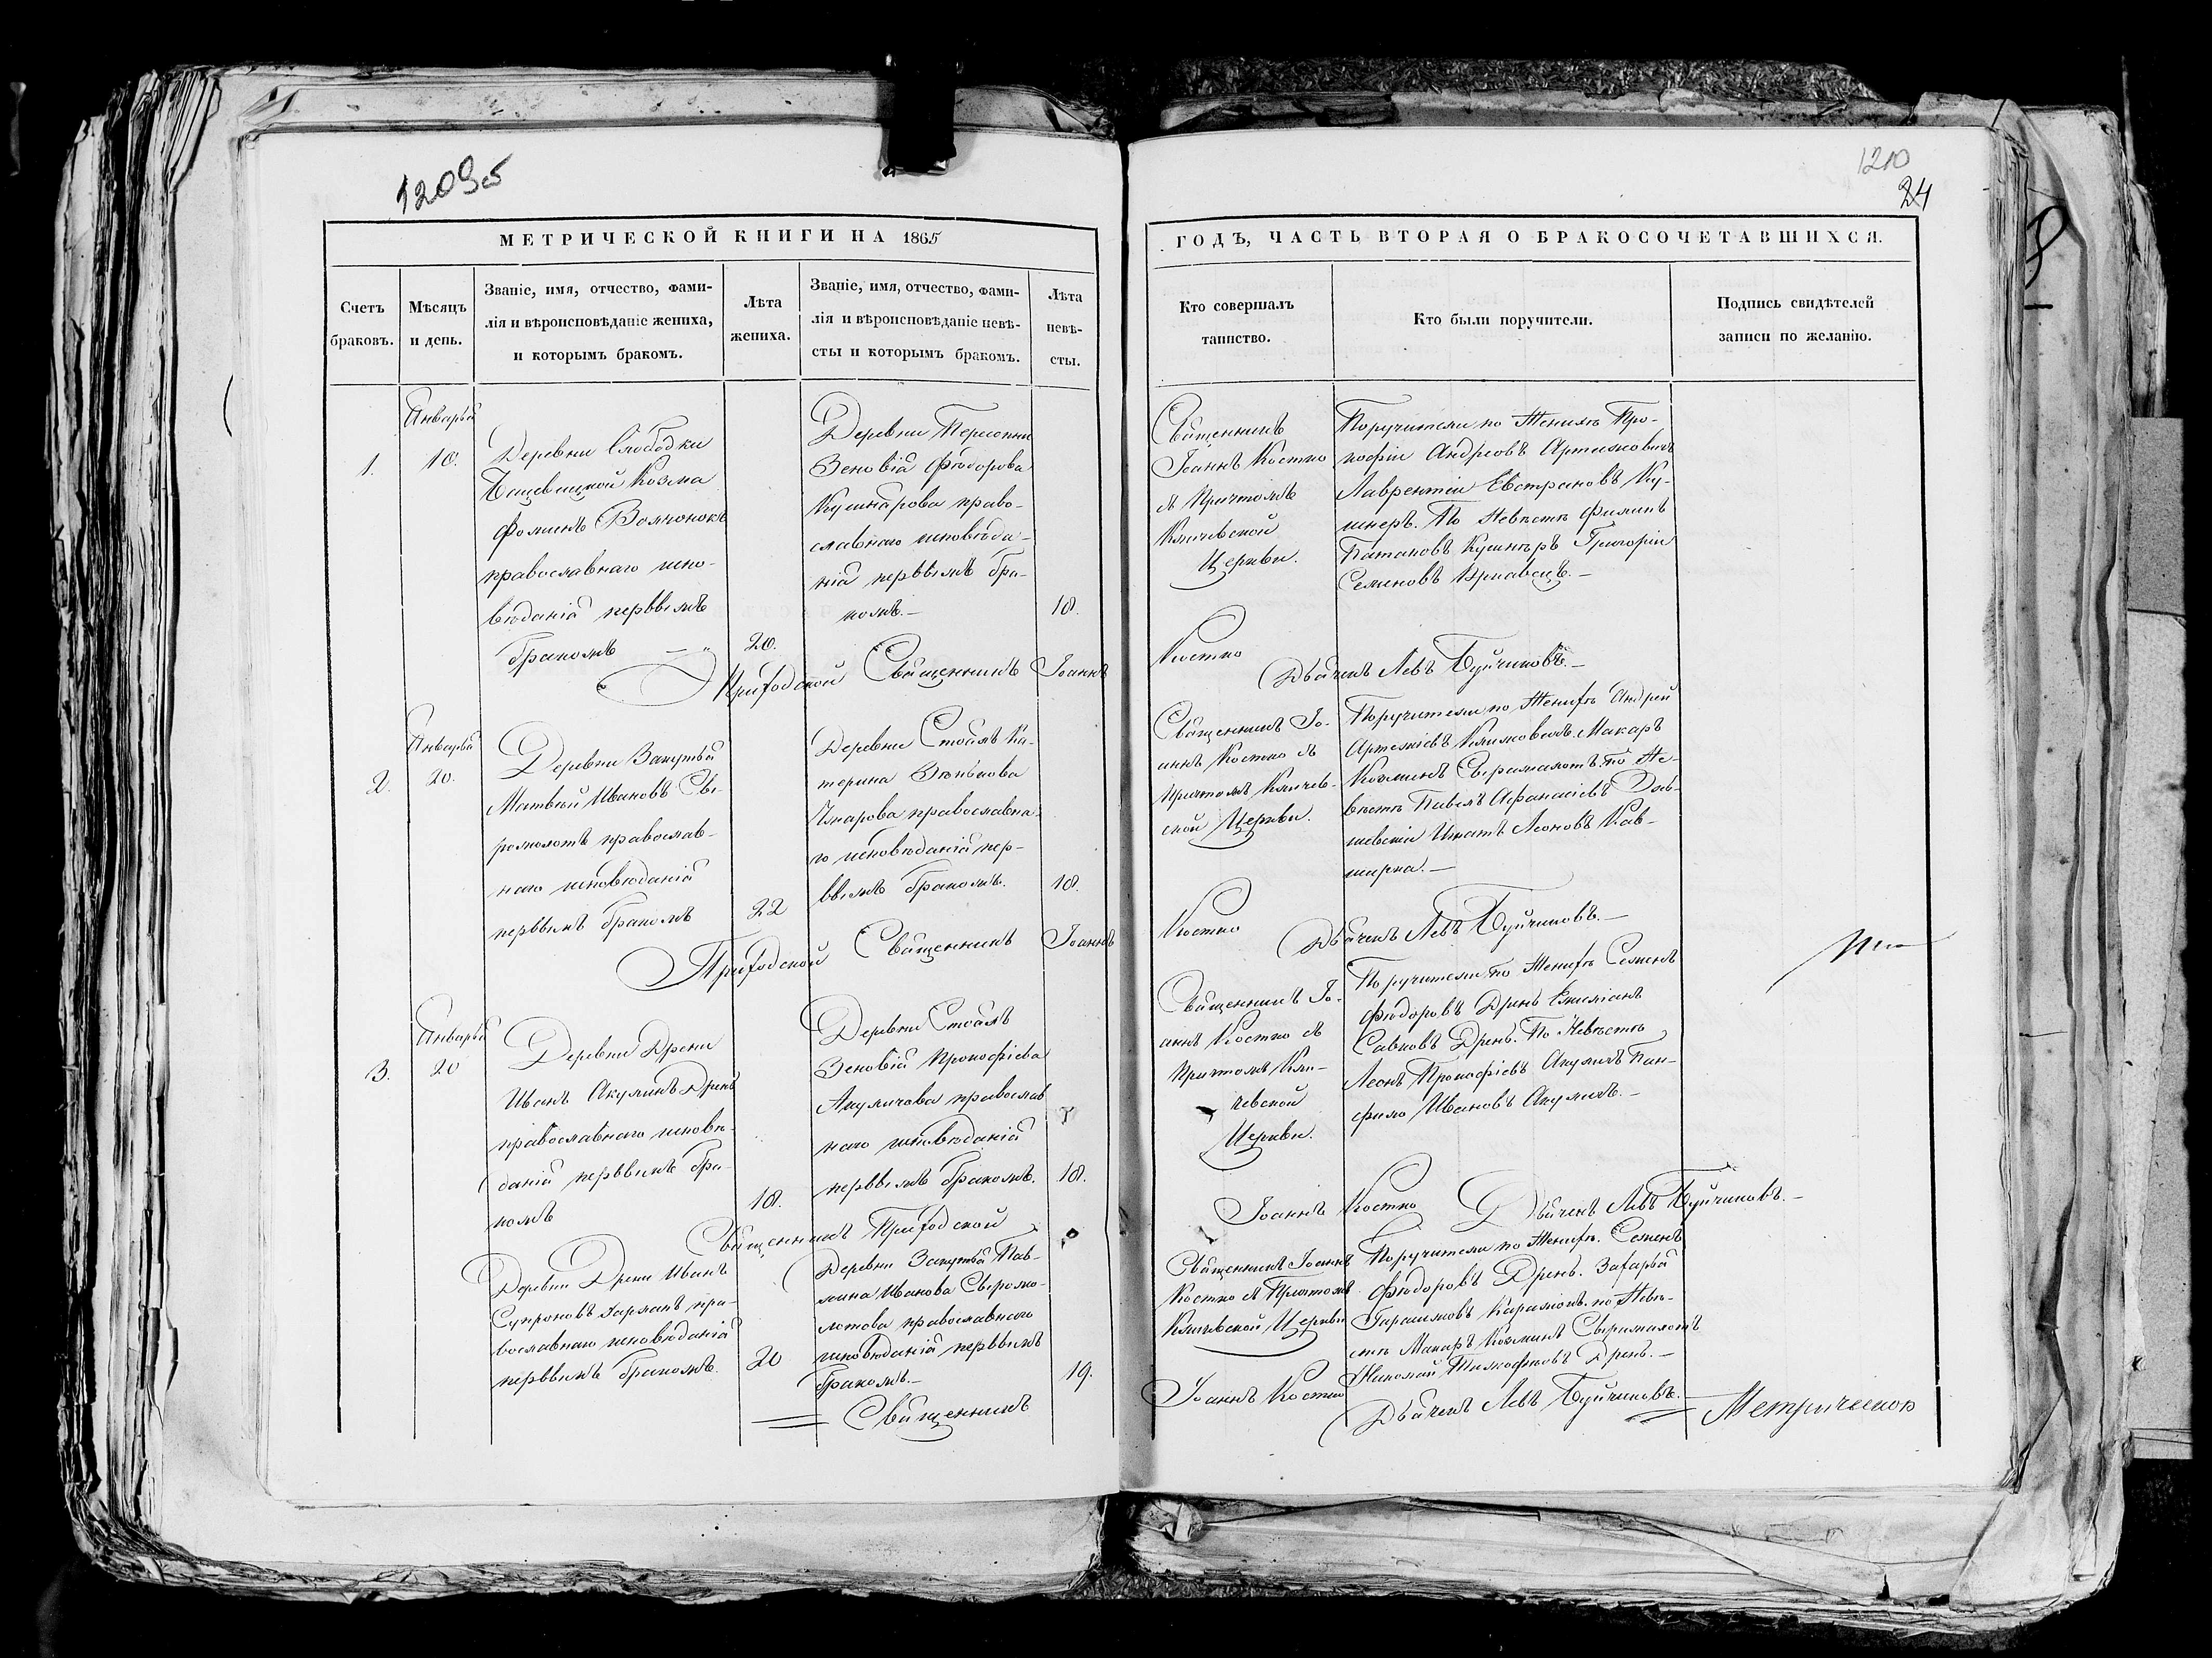 1209об
1210
24
МЕТРИЧЕСКОЙ КНИГИ НА 1865
ГОДЪ, ЧАСТЬ ВТОРАЯ О БРАКОСОЧЕТАВШИХСЯ.
Счетъ
браковъ.
Мѣсяцъ
и день.
Званіе, имя, отчество, фами-
лія и вѣроисповѣданіе жениха,
и которымъ бракомъ.
Лѣта
жениха.
Званіе, имя, отчество, фами-
лія и вѣроисповѣданіе невѣ-
сты и которымъ бракомъ.
Лѣта
невѣ-
сты.
Кто совершалъ
таинство.
Кто были поручители.
Подпись свидѣтелей
записи по желанію.
1.
Январья
10.
Деревни Слободки
Козма
Фоминъ Волчонокъ
православнаго испо-
вѣданія первымъ
бракомъ
20.
Деревни
Зеновія Фіодорова
Кушнарова право-
славнаго исповѣда-
нія первымъ бра-
комъ.—
18.
Священникъ
Іоаннъ Костко
съ Причтомъ
Кличевской
Церкви.
Поручители по Женихѣ Про-
кофій Андреовъ
Лаврентій Ку-
шнеръ. По Невѣстѣ
Кушнеръ Григорій
Семеновъ
Приходской Священникъ Іоаннъ
Костко
Дьячекъ Левъ Буйчиковъ.—
2.
Январья
20.
Деревни Закутья
Матвей Ивановъ Сы-
ромолотъ православ-
наго исповѣданія
первымъ бракомъ
22
Деревни Стоялъ Ка-
терина
православна-
го исповѣданія пер-
вымъ бракомъ.
18.
Священникъ Іо-
аннъ Костко съ
Причтомъ Кличев-
ской Церкви.
Поручители по Женихѣ Андрей
Артеміевъ Климовичъ. Макаръ
Козминъ Сыромолотъ. по Не-
вѣстѣ Павелъ Афанасіевъ
Игнатъ Леоновъ Кав-
Приходской Священникъ Іоаннъ
Костко
Дьячекъ Левъ Буйчиковъ.—
3.
Январья
20
Деревни Дрени
Иванъ Акулинъ Дрень
православнаго исповѣ-
данія первымъ бра-
комъ
18.
Деревни Стоялъ
Зеновія Прокофіева
Акуличова православ
наго исповѣданія
первымъ бракомъ.
18.
Священникъ Іо-
аннъ Костко съ
Причтомъ Кли-
чевской
Церкви.
Поручители по Женихѣ Семенъ
Фіодоровъ Дрень Емиліанъ
Савковъ Дрень. По Невѣстѣ
Леонъ Прокофіевъ Акуличъ Пан-
филъ Ивановъ Акуличъ.—
Священникъ Приходской
Іоаннъ Костко
Дьячекъ Левъ Буйчиковъ.—
Деревни Дрени Иванъ
Супроновъ пра-
вославнаго исповѣданія
первымъ бракомъ.
20
Деревни Закутья Пав-
лина Иванова Сыромо-
лотова православнаго
исповѣданія первымъ
бракомъ.—
19.
Священникъ Іоаннъ
Костко съ Причтомъ
Кличевской Церкви
Поручители по Женихѣ. Семенъ
Фіодоровъ Дрень. Захарья
по Невѣ-
стѣ Макаръ Козминъ Сыромолотъ
Николай Дрень.—
Священникъ
Іоаннъ Костко
Дьячекъ Левъ Буйчиковъ.